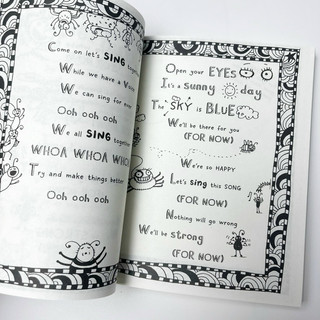 Come on let's SING together
While we have a Voice
We can sing for
Ooh ooh ooh
We all SING together
WHOA WHOA WHOA
Try and make things better
Ooh ooh ooh
Open your EYES
It's a sunny day
The SKY is BLUE
We'll be there for you
(FOR NOW)
We're so HAPPY
Let's sing this SONG
(FOR NOW)
Nothing will go wrong
We'll be strong
(FOR NOW)